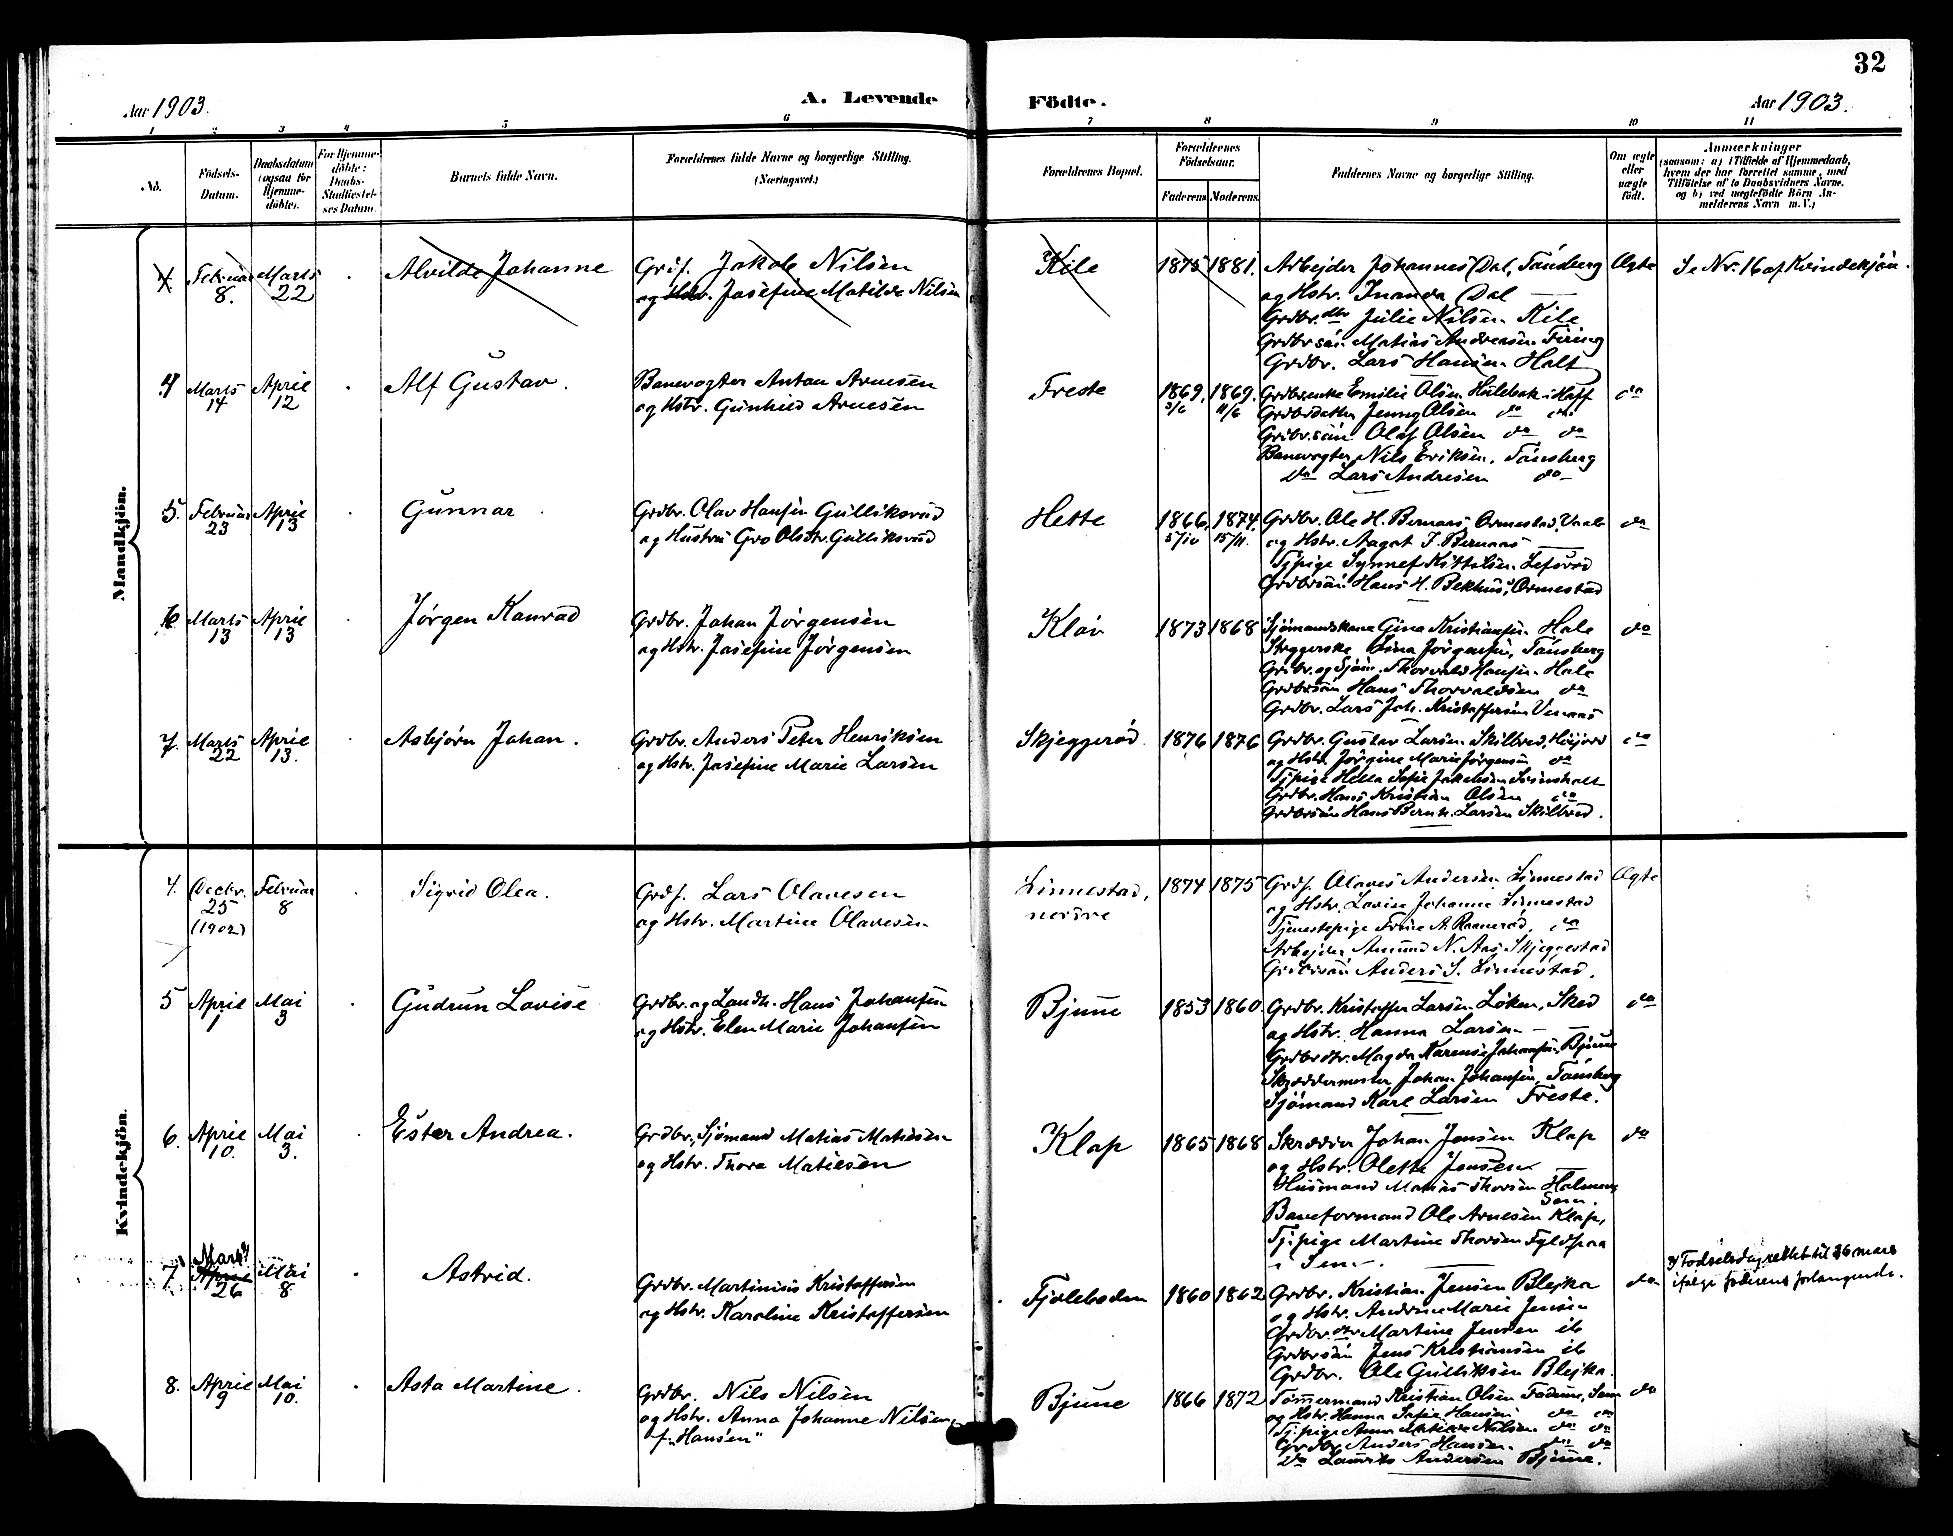 32
Aar 1903.
A. Levende
Födte.
Aar 1903.
1 2 3 4 5 6 7 8 9 10 11
No.
Födsels-
Datum.
Daabsdatum
(ogsaa for
Hjemme-
döbte).
For Hjemme-
döbte:
Daabs-
Stadfæstel-
ses Datum.
Barnets fulde Navn.
Forældrenes fulde Navne og borgerlige Stilling.
(Næringsvei.)
Forældrenes Bopæl.
Forældrenes
Födselsaar.
Faderens
Moderens
Faddernes Navne og borgerlige Stilling.
Om ægte
eller
uægte
födt.
Anmærkninger
(saasom: a) i Tilfælde af Hjemmedaab,
hvem der har forrettet samme, med
Tilföielse af to Daabsvidners Navne.
og b) ved uægtefödte Börn An-
melderens Navn m. V.)
Mandkjön.
4 Februar 8. Marts 22 Alvilde Johanne
Grdf. Jakob Nilsen
og Hstr. Josefine Matilde Nilsen
Kile 1875 1881.
Arbejder Johannes Dal, Tönsberg
og Hstr. Inanda Dal —
Grdbr.dtr Julie Nilsen Kile
Grdbrsön Matias Andersen Firing
Grdbr. Lars Hansen Holt
Ægte
Se Nr. 16 af Kvindekjön.
4 Marts 14 April 12 Alf Gustav.
Banevogter Anton Arnesen
og Hstr. Gunhild Arnesen
Freste 1869. 1869. 11/6
Grdbrenke Emilie Olsen Hulebak i Hoff
Grdbrdatter Jenny Olsen do do
Grdbr.sön Olaf Olsen do do
Banevogter Nils Eriksen. Tönsberg
do Lars Andresen do
do
5. Februar 23 April 13 Gunnar
Grdbr. Olav Hansen Gulliksrud
og Hustru Gro Olsdtr. Gulliksrud
Hette 1866. 1874. 15/11.
Grdbr. Ole H. Bernaas Ormestad,
og Hstr. Aagot J. Bernaas —
Tjpige Synnef Kittelsen
Grdbrsön Hans H. Bekhus, Ormestad
do
6 Marts 13 April 13 Jørgen Konrad
Grdbr. Johan Jørgensen
og Hstr. Josefine Jørgensen
Kløv 1873 1868
Sjømandskone Gina Kristiansen Hole
Strygerske Lina Jørgensen, Tönsberg
Grdbr. og Sjøm. Thorvald Hansen Hole
Grdbrsön Hans Thorvaldsen do
Grdbr. Lars Joh. Kristoffersen
do
7. Marts 22 April 13. Asbjørn Johan.
Grdbr. Anders Peter Henriksen
og Hstr. Josefine Marie Larsen
Skjeggerød. 1876 1876
Grdbr. Gustav Larsen Skilbred,
og Hstr. Jørgine Marie Jørgensen do
Tjpige Hella Sofie Jakobsen
Grdbr. Hans Kristian Olsen do
Grdbrsön Hans Bernh. Larsen Skilbred.
do
Kvindekjön.
4. Decbr. 25 (1902) Februar 8 Sigrid Olea.
Grdf. Lars Olavesen
og Hstr. Martine Olavesen
Linnestad,
nordre
1874 1875
Grdf. Olaves Andersen Linnestad
og Hstr. Lovise Johanne Linnestad
Tjenestepige Trine A. Ramerød, do
Arbejder Amund N. Aas, Skjeggestad
Grdbrsön Anders S. Linnestad.
Ægte
5 April 1 Mai 3 Gudrun Lovise
Grdbr. og Landh. Hans Johansen
og Hstr. Elen Marie Johansen
Bjune 1853 1860.
Grdbr. Kristoffer Larsen Løken,
og Hstr. Hanna Larsen — —
Grdbrdtr. Magda Karense Johansen, Bjune
Skræddermester Johan Johansen, Tönsberg
Sjømand Karl Larsen Freste.
do
6. April 10. Mai 3. Ester Andrea.
Grdbr., Sjømand Matias Matiesen
og Hstr. Thora Matiesen
Klop 1865 1868
Skrædder Johan Jensen Klop
og Hstr. Olette Jensen —
Husmand Matias Thorsen
Sem.
Baneformand Ole Arnesen Klop,
Tjpige Martine Thorsen
i Sem.
do
7. Marts x) April 26 Mai 8 Astrid.
Grdbr. Martinius Kristoffersen
og Hstr. Karoline Kristoffersen
Fjoleboden 1860 1862
Grdbr. Kristian Jensen Blejka
og Hstr. Andrine Marie Jensen
Grdbr.dtr Martine Jensen ib
Grdbrsön Jens Kristiansen ib
Grdbr. Ole Gulliksen Blejka.
do
x) Fødselsdag rettet til 26 mars
ifølge faderens forlangende.
8. April 9 Mai 10. Asta Martine.
Grdbr. Nils Nilsen
og Hstr. Anna Johanne Nilsen,
f. "Hansen"
Bjune 1866 1872
Tømmermand Kristian Olsen Fodune, Sem
og Hstr. Hanna Sofie Hansen do do
Tjpige Anna Matilde Nilsen do do
Grdbr. Anders Hansen do do
do Laurits Andersen Bjune.
do